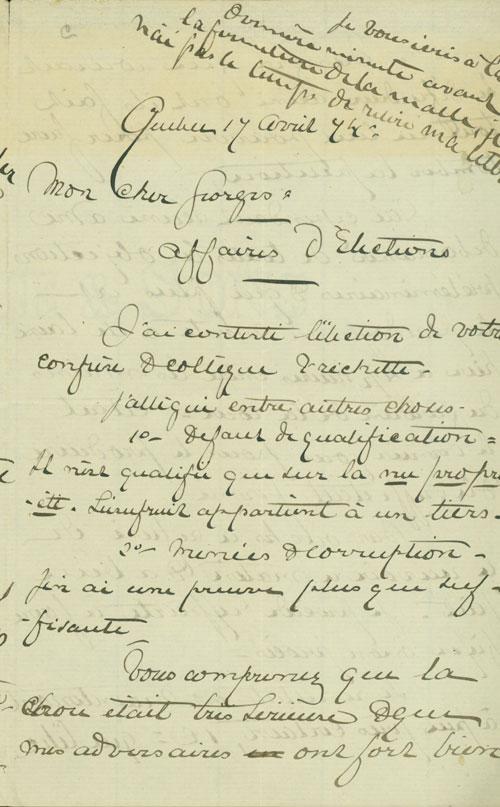 Je vous écris à la
dernière minute avant
la fermeture de la malle je
n'ai pas le temps de relire ma lettre
Quebec 17 Avril 74
Mon cher Georges =
Affaires d'Elections
J'ai contesté l'élection de votre
confrère & collègue Frechette -
J'allègue entre autres choses -
1o- Défaut de qualification =
Il n'est qualifié que sur la nu propri
-été. L'usufruit appartient à un tiers -
2o- menées & corruption -
J'en ai une preuve plus que suf-
-fisante
Vous comprenez que la
chose était très sérieuse & que
mes adversaires ont fort bien